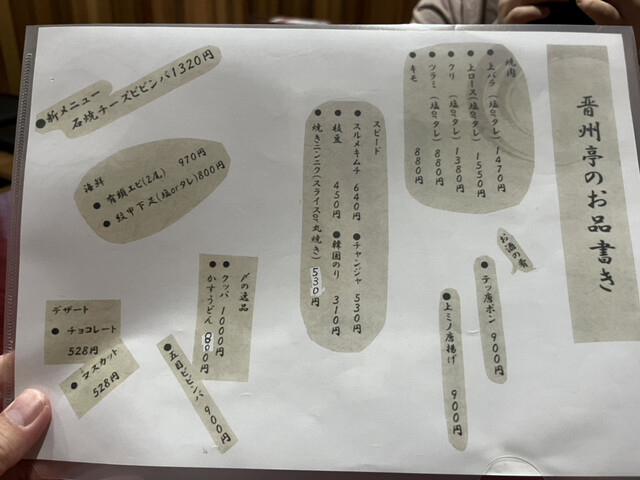 晋州亭のお品書き
焼肉
● 上バラ (塩orタレ) 1470円
● 上ロース (塩orタレ) 1550円
● クリ (塩orタレ) 1380円
● ツラミ (塩orタレ) 880円
● キモ 880円
お酒の友
● テッ唐ポン 900円
● 上ミノ唐揚げ 900円
スピード
● スルメキムチ 640円 ● チャンジャ 530円
● 枝豆 450円 ● 韓国のり 310円
● 焼きニンニク(スライスor丸焼き) 530円
〆の逸品
● クッパ 1000円
● かすうどん 800円
● 五目ビビンバ 900円
● 新メニュー
石焼チーズビビンバ1320円
海鮮
● 有頭エビ(2尾) 970円
● 紋甲下足(塩orタレ)800円
デザート
● チョコレート
528円
● マスカット
528円